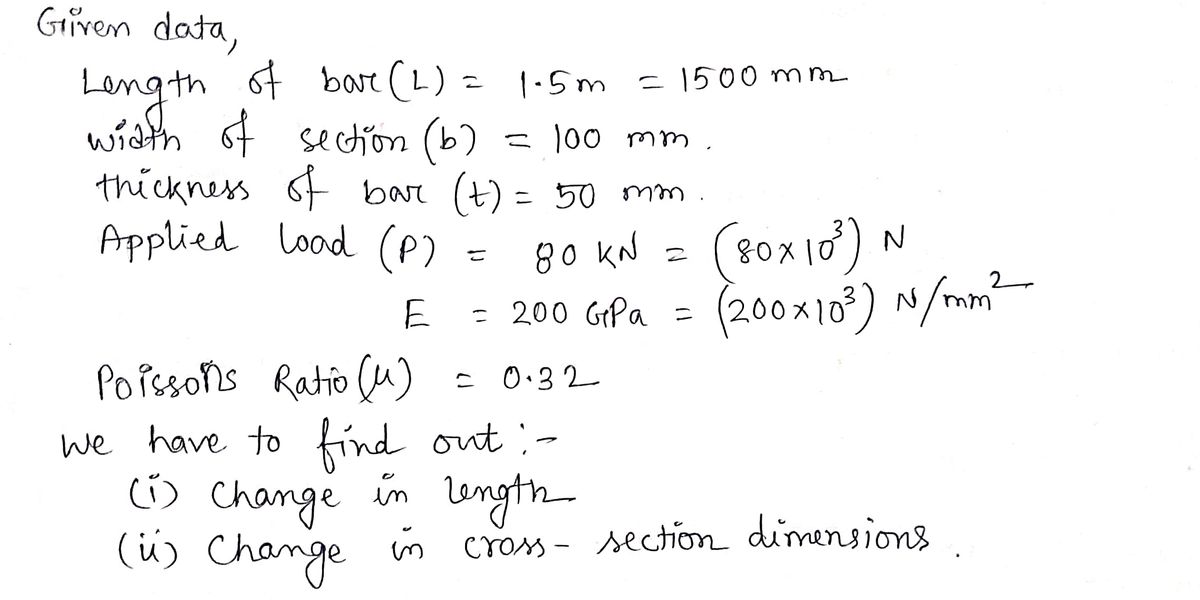 Given data,
Length of bar (L) = 1.5m = 1500 mm
width of section (b) = 100 mm.
thickness of bar (t) = 50 mm.
Applied load (P) = 80 KN = (80×10³) N
E = 200 GPa = (200×10³) N/mm²
Poissons Ratio (μ) = 0.32
we have to find out :-
(i) Change in length
(ii) Change in cross-section dimensions.